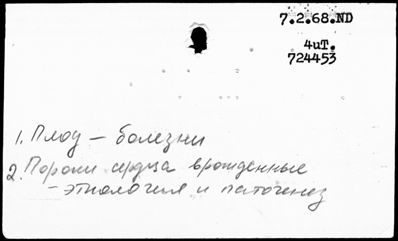 7.2.68.ND
4иТ.
724453
1. Плод — болезни
2. Пороки сердца врожденные
- этиология и патогенез